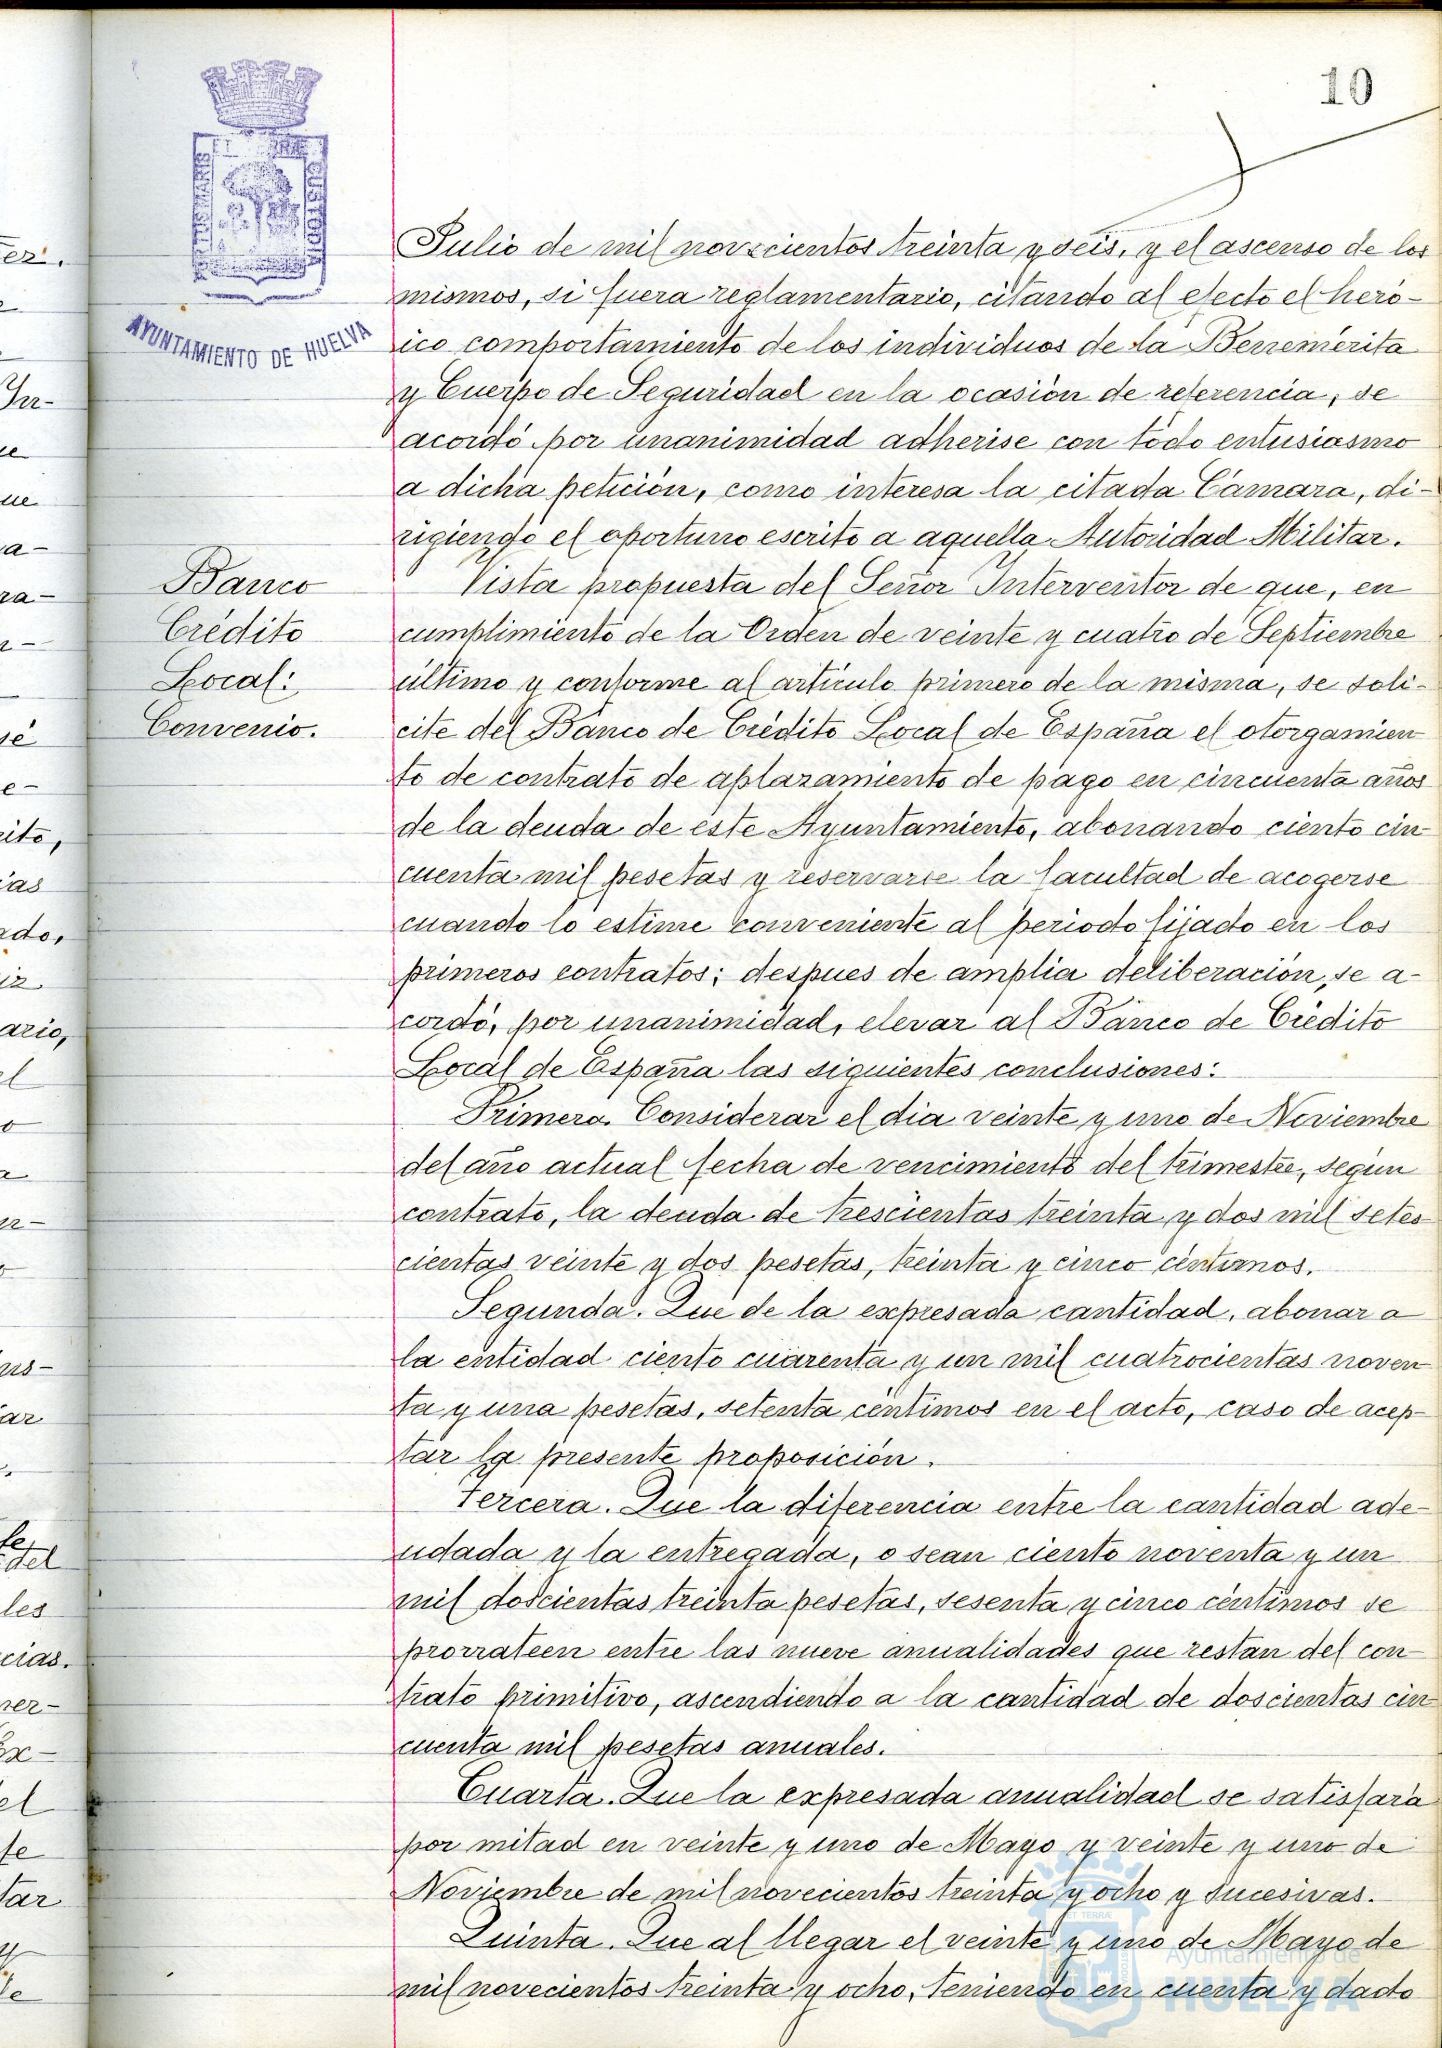 10
ET TERRÆ
CUSTODIA
AYUNTAMIENTO DE HUELVA
Julio de mil novecientos treinta y seis, y el ascenso de los
mismos, si fuera reglamentario, citando al efecto el heró-
ico comportamiento de los individuos de la Benemérita
y Cuerpo de Seguridad en la ocasión de referencia, se
acordó por unanimidad adherise con todo entusiasmo
a dicha petición, como interesa la citada Cámara, di-
rigiendo el oportuno escrito a aquella Autoridad Militar.
Banco
Crédito
Local:
Convenio.
Vista propuesta del Señor Interventor de que, en
cumplimiento de la Orden de veinte y cuatro de Septiembre
último y conforme al artículo primero de la misma, se soli-
cite del Banco de Crédito Local de España el otorgamien
to de contrato de aplazamiento de pago en cincuenta años
de la deuda de este Ayuntamiento, abonando ciento cin
cuenta mil pesetas y reservarse la facultad de acogerse
cuando lo estime conveniente al periodo fijado en los
primeros contratos; despues de amplia deliberación, se a-
cordó, por unanimidad, elevar al Banco de Crédito
Local de España las siguientes conclusiones:
Primera. Considerar el dia veinte y uno de Noviembre
del año actual fecha de vencimiento del trimestre, según
contrato, la deuda de trescientas treinta y dos mil sete-
cientas veinte y dos pesetas, treinta y cinco céntimos.
Segunda. Que de la expresada cantidad, abonar a
la entidad ciento cuarenta y un mil cuatrocientas noven
ta y una pesetas, setenta céntimos en el acto, caso de acep-
tar la presente proposición.
Tercera. Que la diferencia entre la cantidad ade-
udada y la entregada, o sean ciento noventa y un
mil doscientas treinta pesetas, sesenta y cinco céntimos se
prorrateen entre las nueve anualidades que restan del con-
trato primitivo, ascendiendo a la cantidad de doscientas cin
cuenta mil pesetas anuales.
Cuarta. Que la expresada anualidad se satisfará
por mitad en veinte y uno de Mayo y veinte y uno de
Noviembre de mil novecientos treinta y ocho y sucesivas.
Quinta. Que al llegar el veinte y uno de Mayo de
mil novecientos treinta y ocho, teniendo en cuenta y dado
Ayuntamiento de
HUELVA